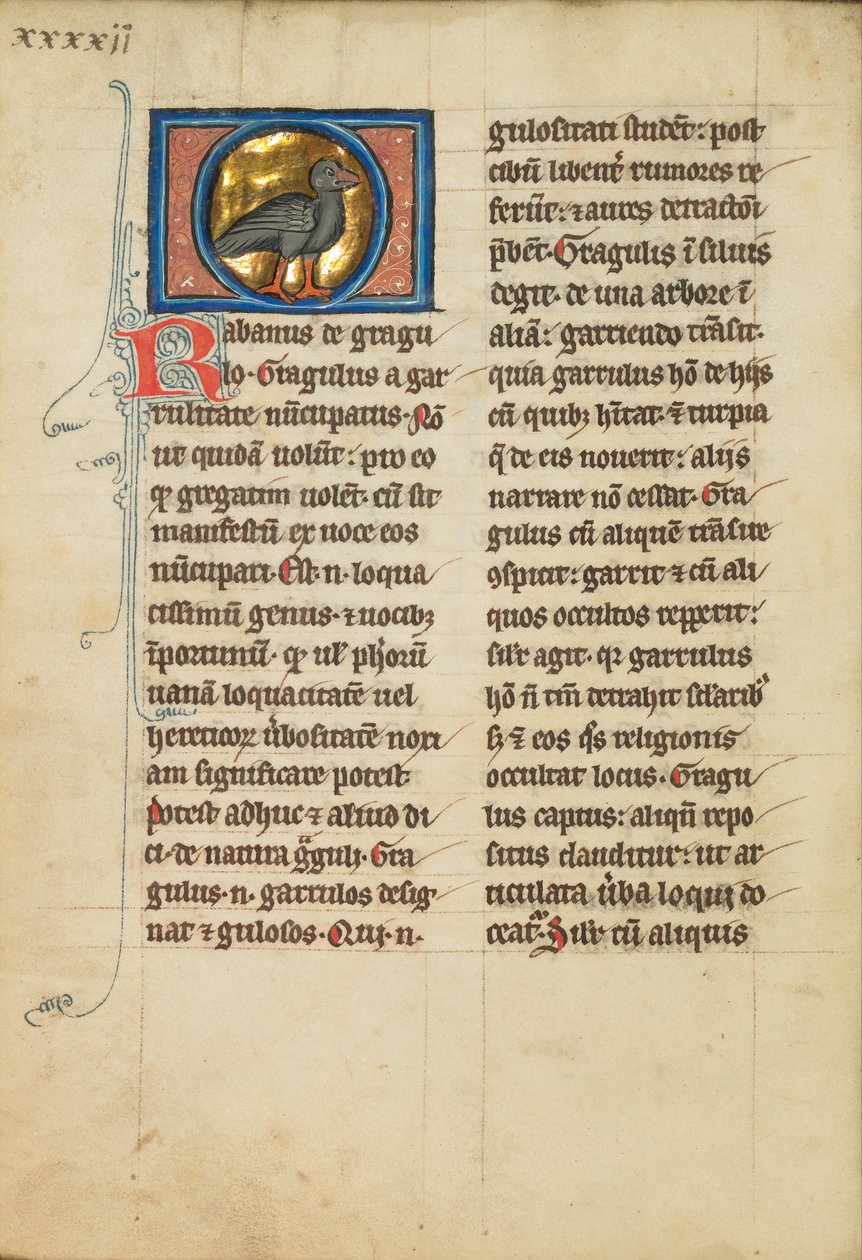 xxxxii
Rabanus de gragu
lo. Gragulus a gar
rulitate nūcupatus. Nō
ut quidā uolūt: pro eo
qͥ gregatim uolēt. cū sit
manifestū ex uoce eos
nūcupari. Est. n. loqua
cissimū genus. ⁊ uocibꝫ
īportunū. qͥ ul' ph'orū
uanā loquacitatē uel
hereticoꝝ ũbositatē noxi
am significare potest.
Potest adhuc ⁊ aliud di
ci. de natura gͣguli. Gra
gulus. n. garrulos desig
nat ⁊ gulosos. Qui. n.
gulositati studēt: post
cibū libent' rumores re
ferūt: ⁊ aures detractōi
p̄bēt. Gragulis ī siluis
degit. de una arbore ī
aliā: garriendo trāsit.
quia garrulus hō de hijs
cū quibꝫ hītat. ⁊ turpia
q̄ de eis nouerit: alijs
narrare nō cessat. Gra
gulus cū aliquē trāsire
ꝯspicit: garrit ⁊ cū ali
quos occultos repperit:
sil'r agit. qr garrulus
hō ñ tm̄ detrahit sclāribꝰ
sꝫ ⁊ eos q̄s religionis
occultat locus. Gragu
lus captus: aliqñ repo
situs clauditur: ut ar
ticulata ũba loqui do
ceatͣ. Sil'r cū aliquis